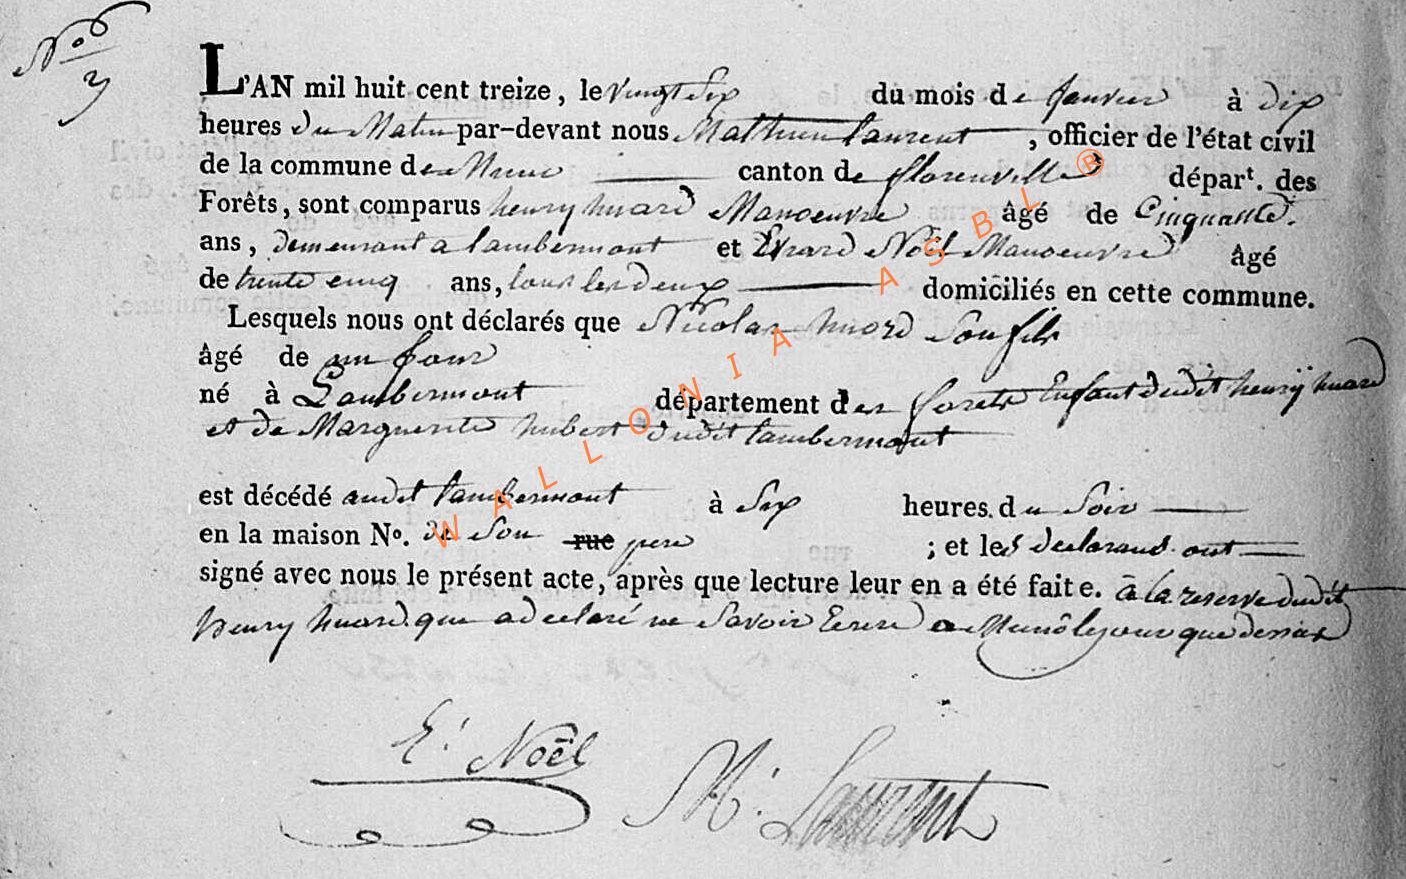 No 3
L'AN mil huit cent treize, le vingt Six du mois de Janvier à dix
heures du Matin par-devant nous Mathieu laurent, officier de l'état civil
de la commune de Muno canton de florenville départ. des
Forêts, sont comparus henry huard Manoeuvre âgé de Cinquante
ans, demeurant a lambermont et Evrard Noël Manoeuvre âgé
de trente cinq ans, tous les deux domiciliés en cette commune.
Lesquels nous ont déclarés que Nicolas huard Son fils
âgé de un jour
né à Lambermont département des forets Enfant dudit henrÿ huard
et de Marguerite hubert dudit lambermont
est décédé audit lambermont à Six heures du Soir
en la maison No. de Son rue pere ; et les declarans ont
signé avec nous le présent acte, après que lecture leur en a été faite. à la reserve dudit
henry huard que a declaré ne Savoir Ecrire a Muno le jour que dessus
E. Noël
M. Laurent
WALLONIA ASBL ®